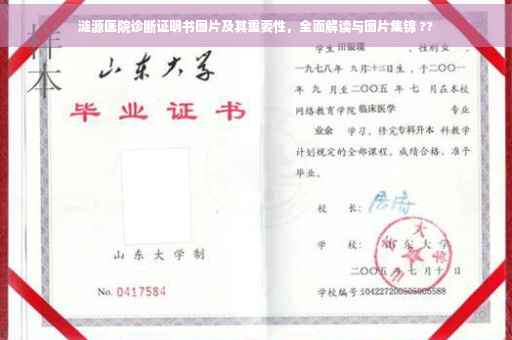 涟源医院诊断证明书图片及其重要性，全面解读与图片集锦 ??
样本
山东大学
毕业证书
山东大学制
No. 0417584
学生 田银瑞 ，性别女 ，
一九七八年 九月十三日生，于二〇〇一
年 九 月至二〇〇五 年 七 月在本校
网络教育学院 临床医学 专业
业余 学习，修完专科升本 科教学
计划规定的全部课程，成绩合格，准予
毕业。
校 长：
学 校： 山东大学
二〇〇五 年 七 月 十 日
学校编号:104227200505005588